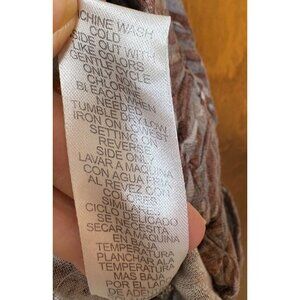 CHINE WASH
COLD
SIDE OUT WITH
LIKE COLORS
GENTLE CYCLE
ONLY NON
CHLORI
BLEACH WHEN
NEEDED
TUMBLE DRY LOW
IRON ON LOWEST
SETTING ON
REVERSE
SIDE ONLY
LAVAR A MAQUINA
CON AGUA FRIA
AL REVEZ CON
COLORES
SIMILARES
CICLO DELICADO
SE NECESITA
SECAR A MAQUINA
EN BAJA
TEMPERATURA
PLANCHAR A LA
TEMPERATURA
MAS BAJA
POR EL LAD
DE ADEN